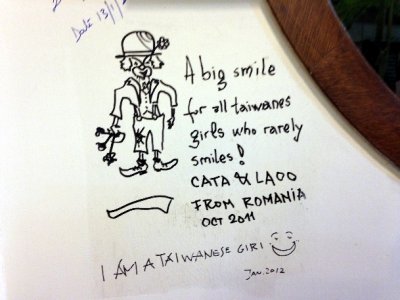 Date 13/11/
A big smile
for all taiwanes
girls who rarely
smiles!
CATA & LAOO
FROM ROMANIA
OCT 2011
I AM A TAIWANESE GIRL
JAN. 2012